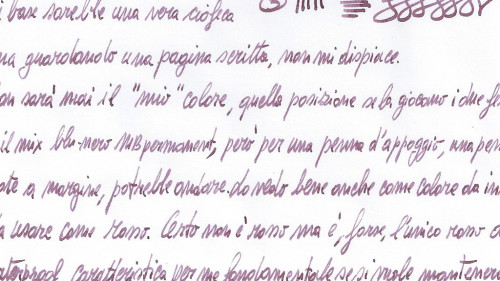 base sarebbe una vera ciofeca
guardando una pagina scritta, non mi dispiace.
sarà mai il "mio" colore, quella posizione se la giocano i due
il mix blu-nero MB permanent, però per una penna d'appoggio, una
a margine, potrebbe andare. Lo vedo bene anche come colore da
usare come rosso. Certo non è rosso ma è, forse, l'unico rosso
caratteristica per me fondamentale se si vuole mantenere